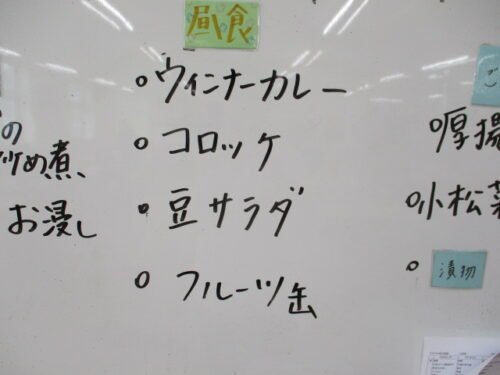 昼食
ウィンナーカレー
コロッケ
豆サラダ
フルーツ缶
の
炒め煮
お浸し
ご
厚揚
小松菜
漬物